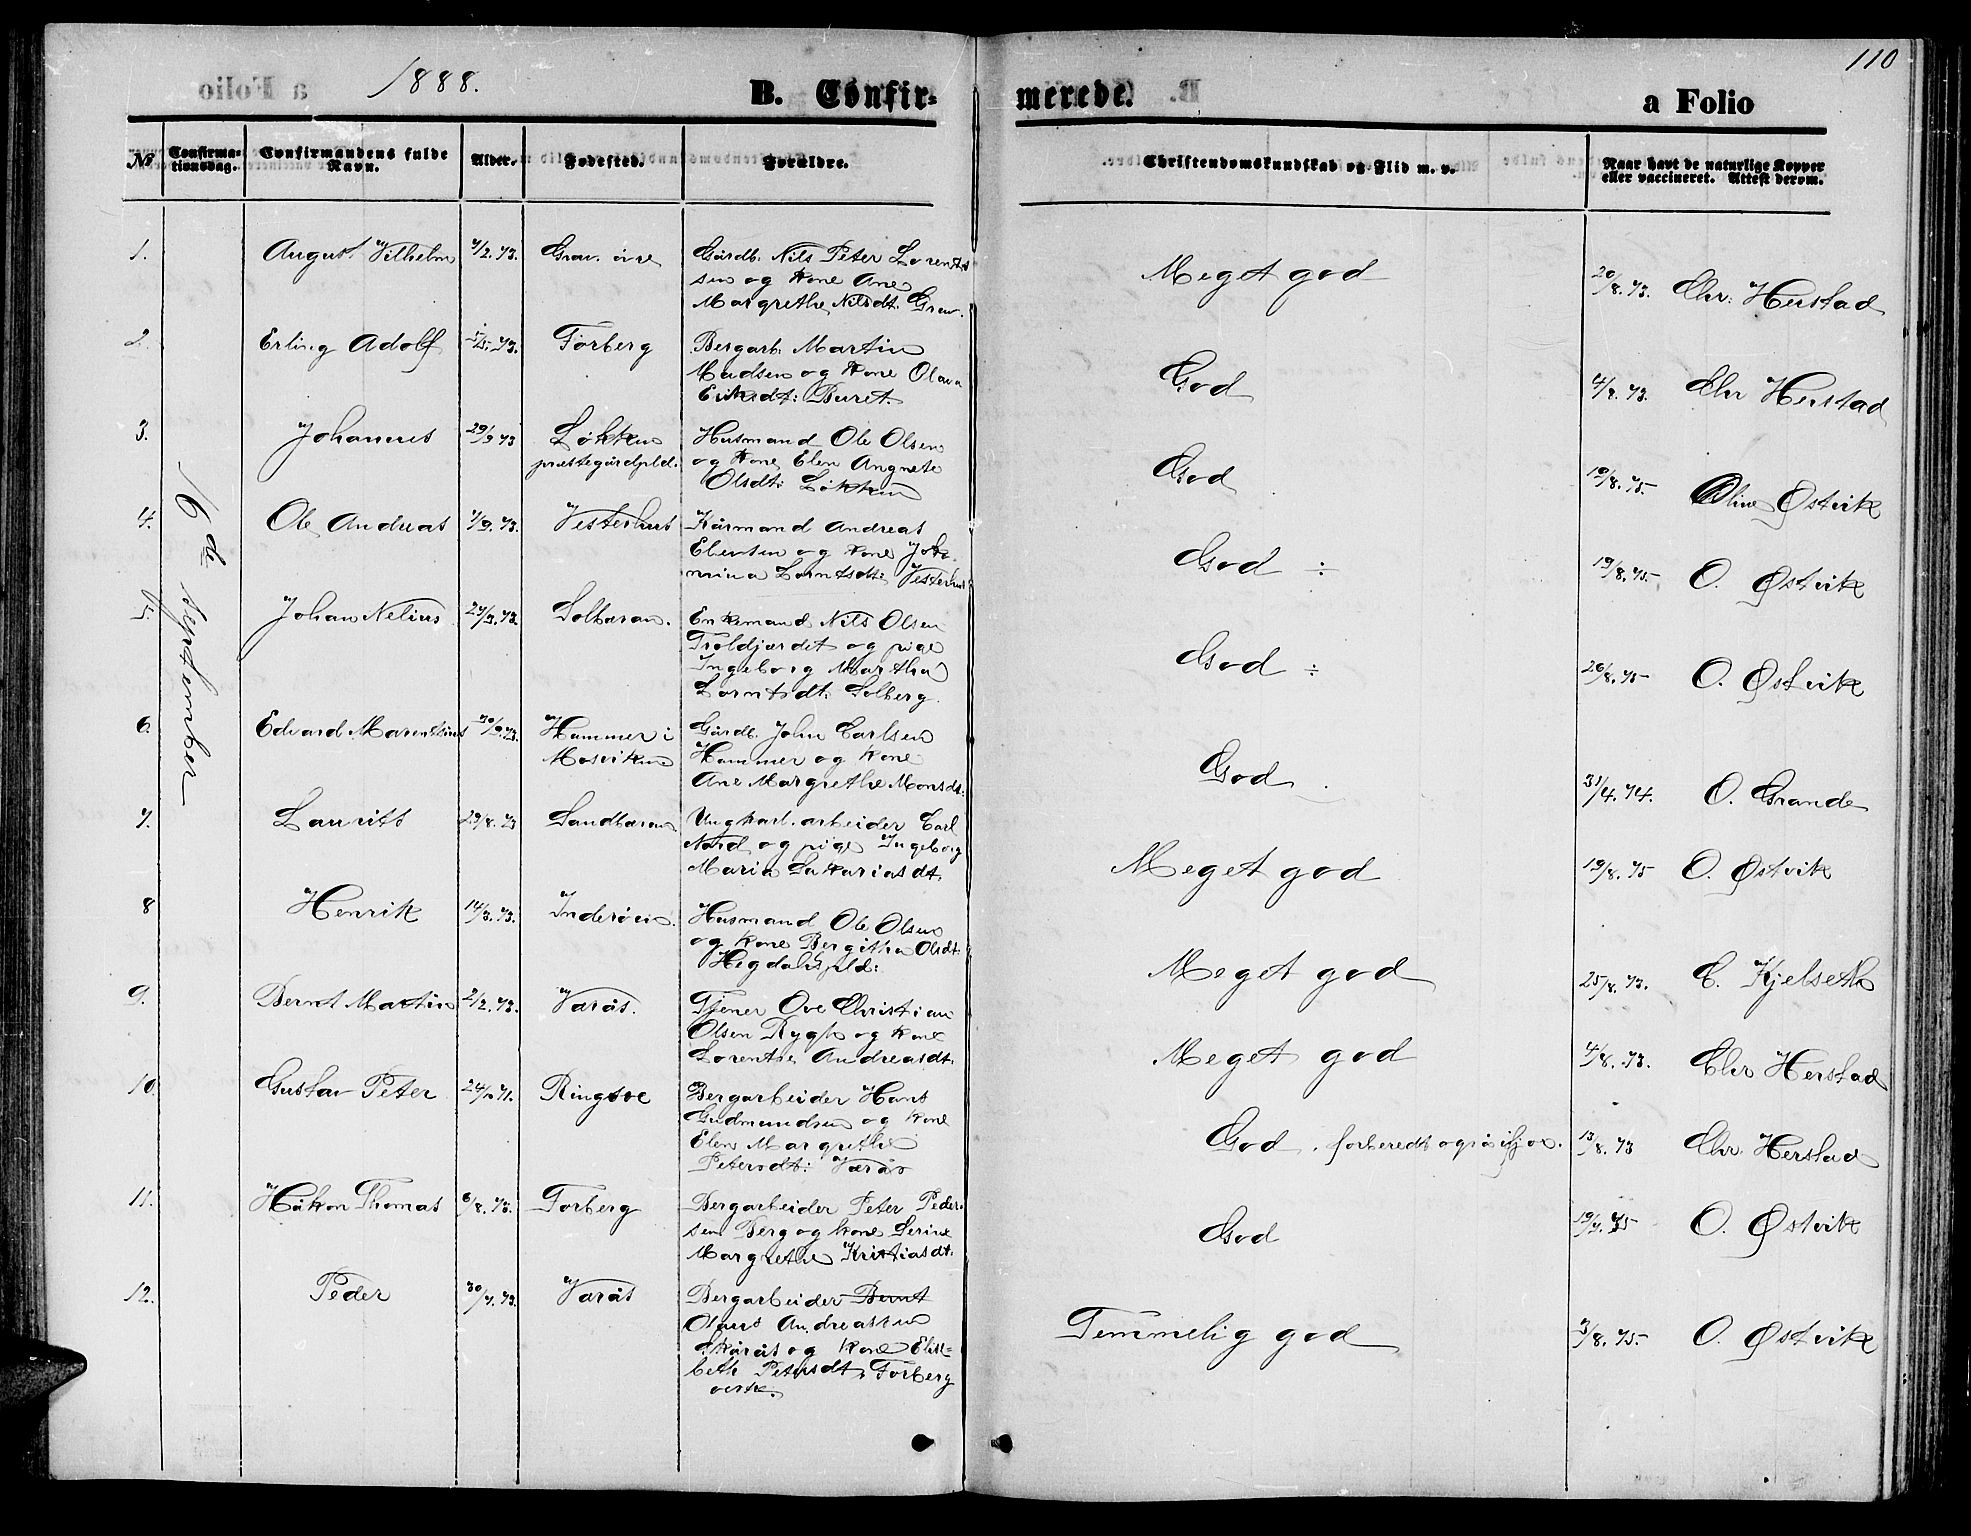 110
1888.
B. Confir-
merede.
a Folio
No
Confirma-
tionsdag.
Confirmandens fulde
Navn.
Alder.
Fødested.
Forældre.
Christendomskundskab og Flid m. v.
Naar havt de naturlige Kopper
eller vaccineret. Attest derom.
16de september
1. August Vilhelm 7/2.73. Grav. övre
Gårdb. Nils Peter Lorents
sen og kone Ane
Margrethe Nilsdt. Grav.
Meget god 20/8.73. Chr. Herstad
2. Erling Adolf Forberg
Bergarb. Martin
Madsen og kone Olava
God 4/8.73. Chr Herstad
3. Johannes 29/3 73 Løkken
præstegårdpld.
Husmand Ole Olsen
og kone Elen Angnete
Olsdt. Løkken
God 19/8.75. Oline Østvik
4. Ole Andreas 7/9.73. Vesterhus
Kårmand Andreas
Ebensen og kone Joha
nnina Lorntsdt. Vesterhus
God ÷ 19/8.75 O. Østvik
5. Johan Nelius 27/3.73. Solbæran.
Enkemand Nils Olsen
Troldjærdet og pige
Ingeborg Martha
Lorntsdt. Solberg.
God ÷ 26/8.75 O. Østvik
6. Edvard Marentsius 30/9.73. Hammer i
Mosviken
Gårdb. John Carlsen
Hammer og kone
Ane Margrethe Monsdt.
God 31/4.74. O. Grande
7. Laurits 29/8.73 Sandbæran
Ungkarl. arbeider Carl
Nord og pige Ingeborg
Maria Sakariasdt.
Meget god 19/8.75 O. Østvik
8 Henrik 14/3.73. Inderøen.
Husmand Ole Olsen
og kone Bergitha Olsdt.
Hegdahlspld:
Meget god 25/8.73. C. Kjelseth
9. Bernt Martin 2/2.73. Værås.
Tjener Ove Christian
Olsen Rygh og kone
Lorentse Andreasdt.
Meget god 4/8.73. Chr Herstad
10 Gustav Peter Ringsve
Bergarbeider Hans
Gudmundsen og kone
Elen Margrethe
Petersdt: Værås
God. forberedt også ifjor. 13/8.73 Chr. Herstad
11. Håkon Thomas 6/8.73. Forberg
Bergarbeider Peter Peder-
sen Berg og kone Serine
Margrethe Kristiasdt.
God O. Østvik
12. Peder 30/7.73. Værås
Bergarbeider Bernt
Olaus Andreassen
Skårås og kone Elise-
beth Petersdt. Forberg
Temmelig god 3/8.75. O. Østvik